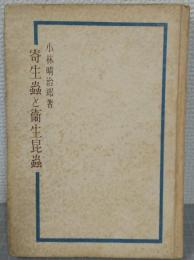 小林晴治郎著
寄生蟲と衞生昆蟲